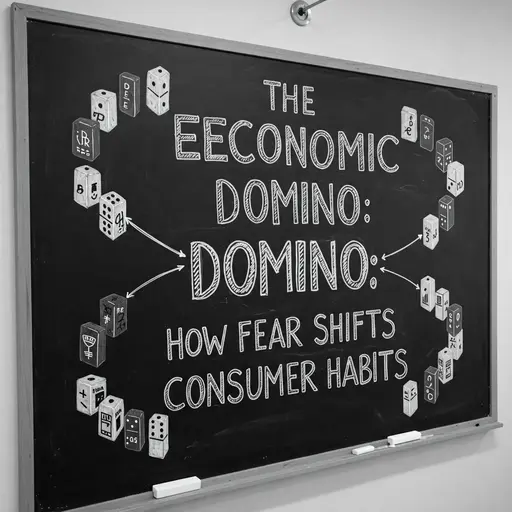 THE
EECONOMIC
DOMINO:
DOMINO:
HOW FEAR SHIFTS
CONSUMER HABITS